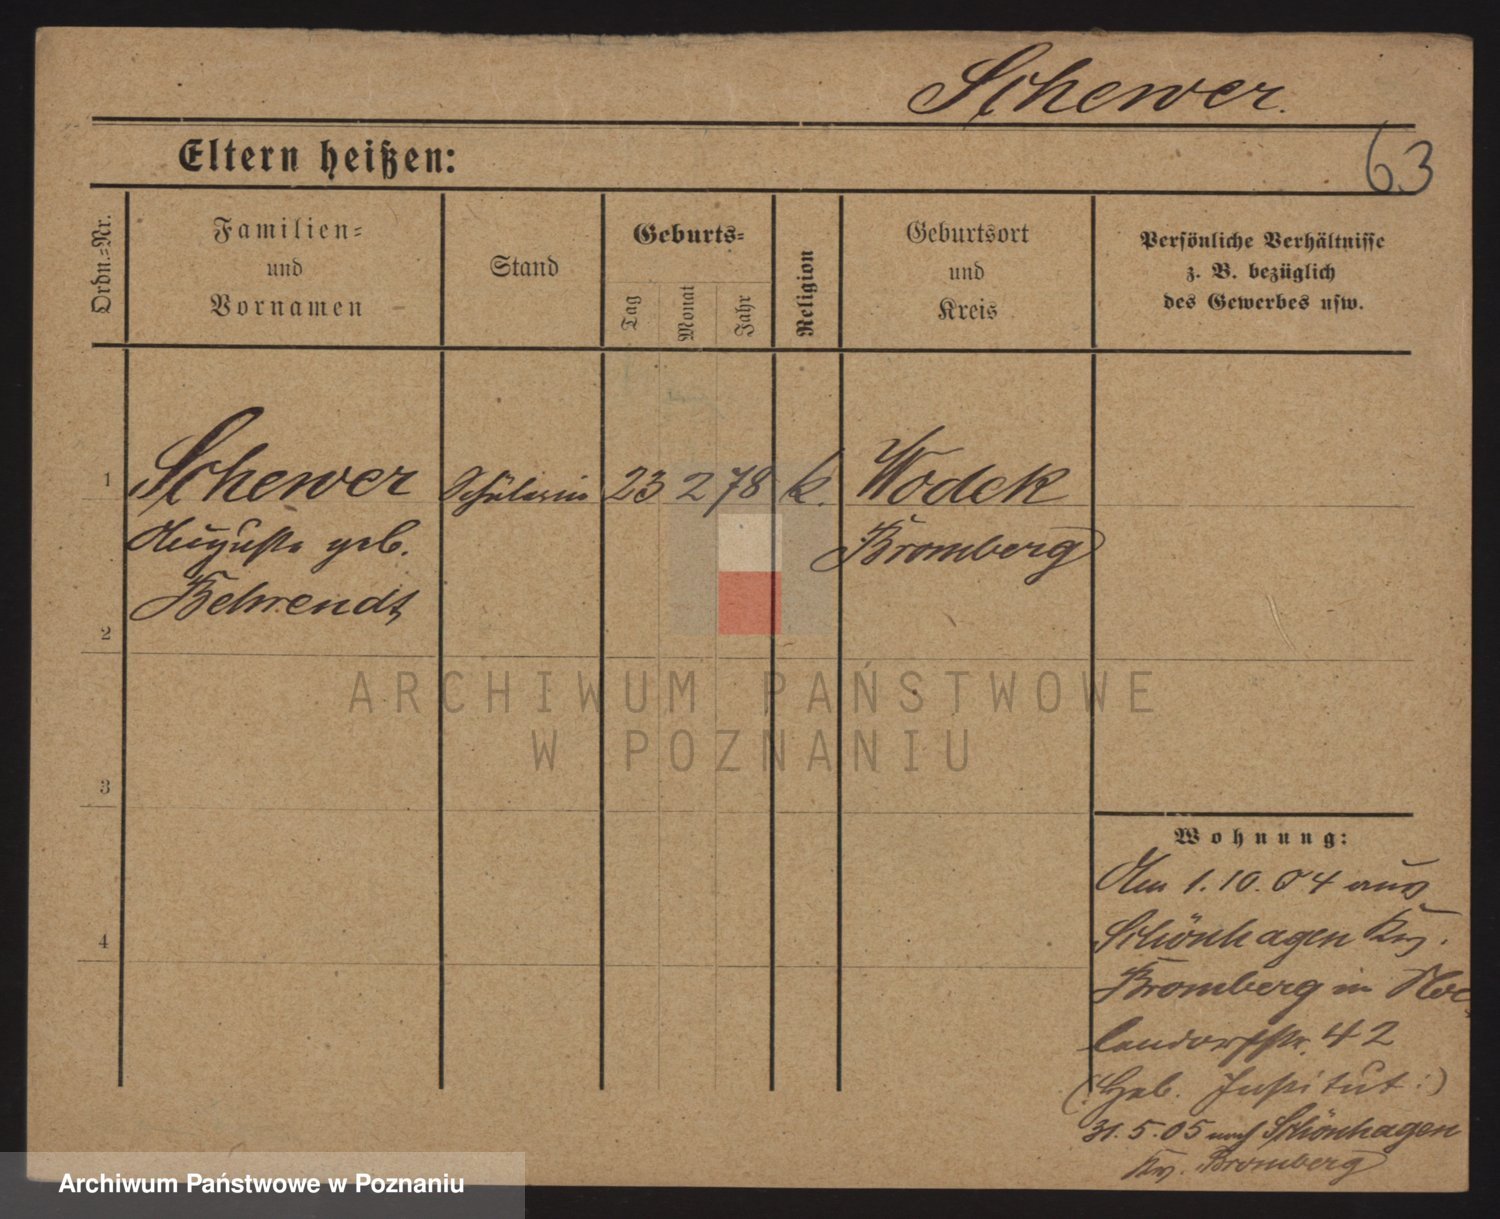 Schewer.
63
Eltern heißen:
Ordn.=Nr.
Familien=
und
Vornamen
Stand
Geburts=
Tag
Monat
Jahr
Religion
Geburtsort
und
Kreis
Persönliche Verhältnisse
z. B. bezüglich
des Gewerbes usw.
1
Schewer Schülerin 23 2 78 k. Wodek
Auguste geb. Bromberg
Behrendt
2
3
4
Wohnung:
Am 1.10.04 aus
Schönhagen Krs.
Bromberg in Nol
lendorfstr. 42
(: Heb. Institut :)
31.5.05 nach Schönhagen
Krs. Bromberg
ARCHIWUM PAŃSTWOWE
W POZNANIU
Archiwum Państwowe w Poznaniu